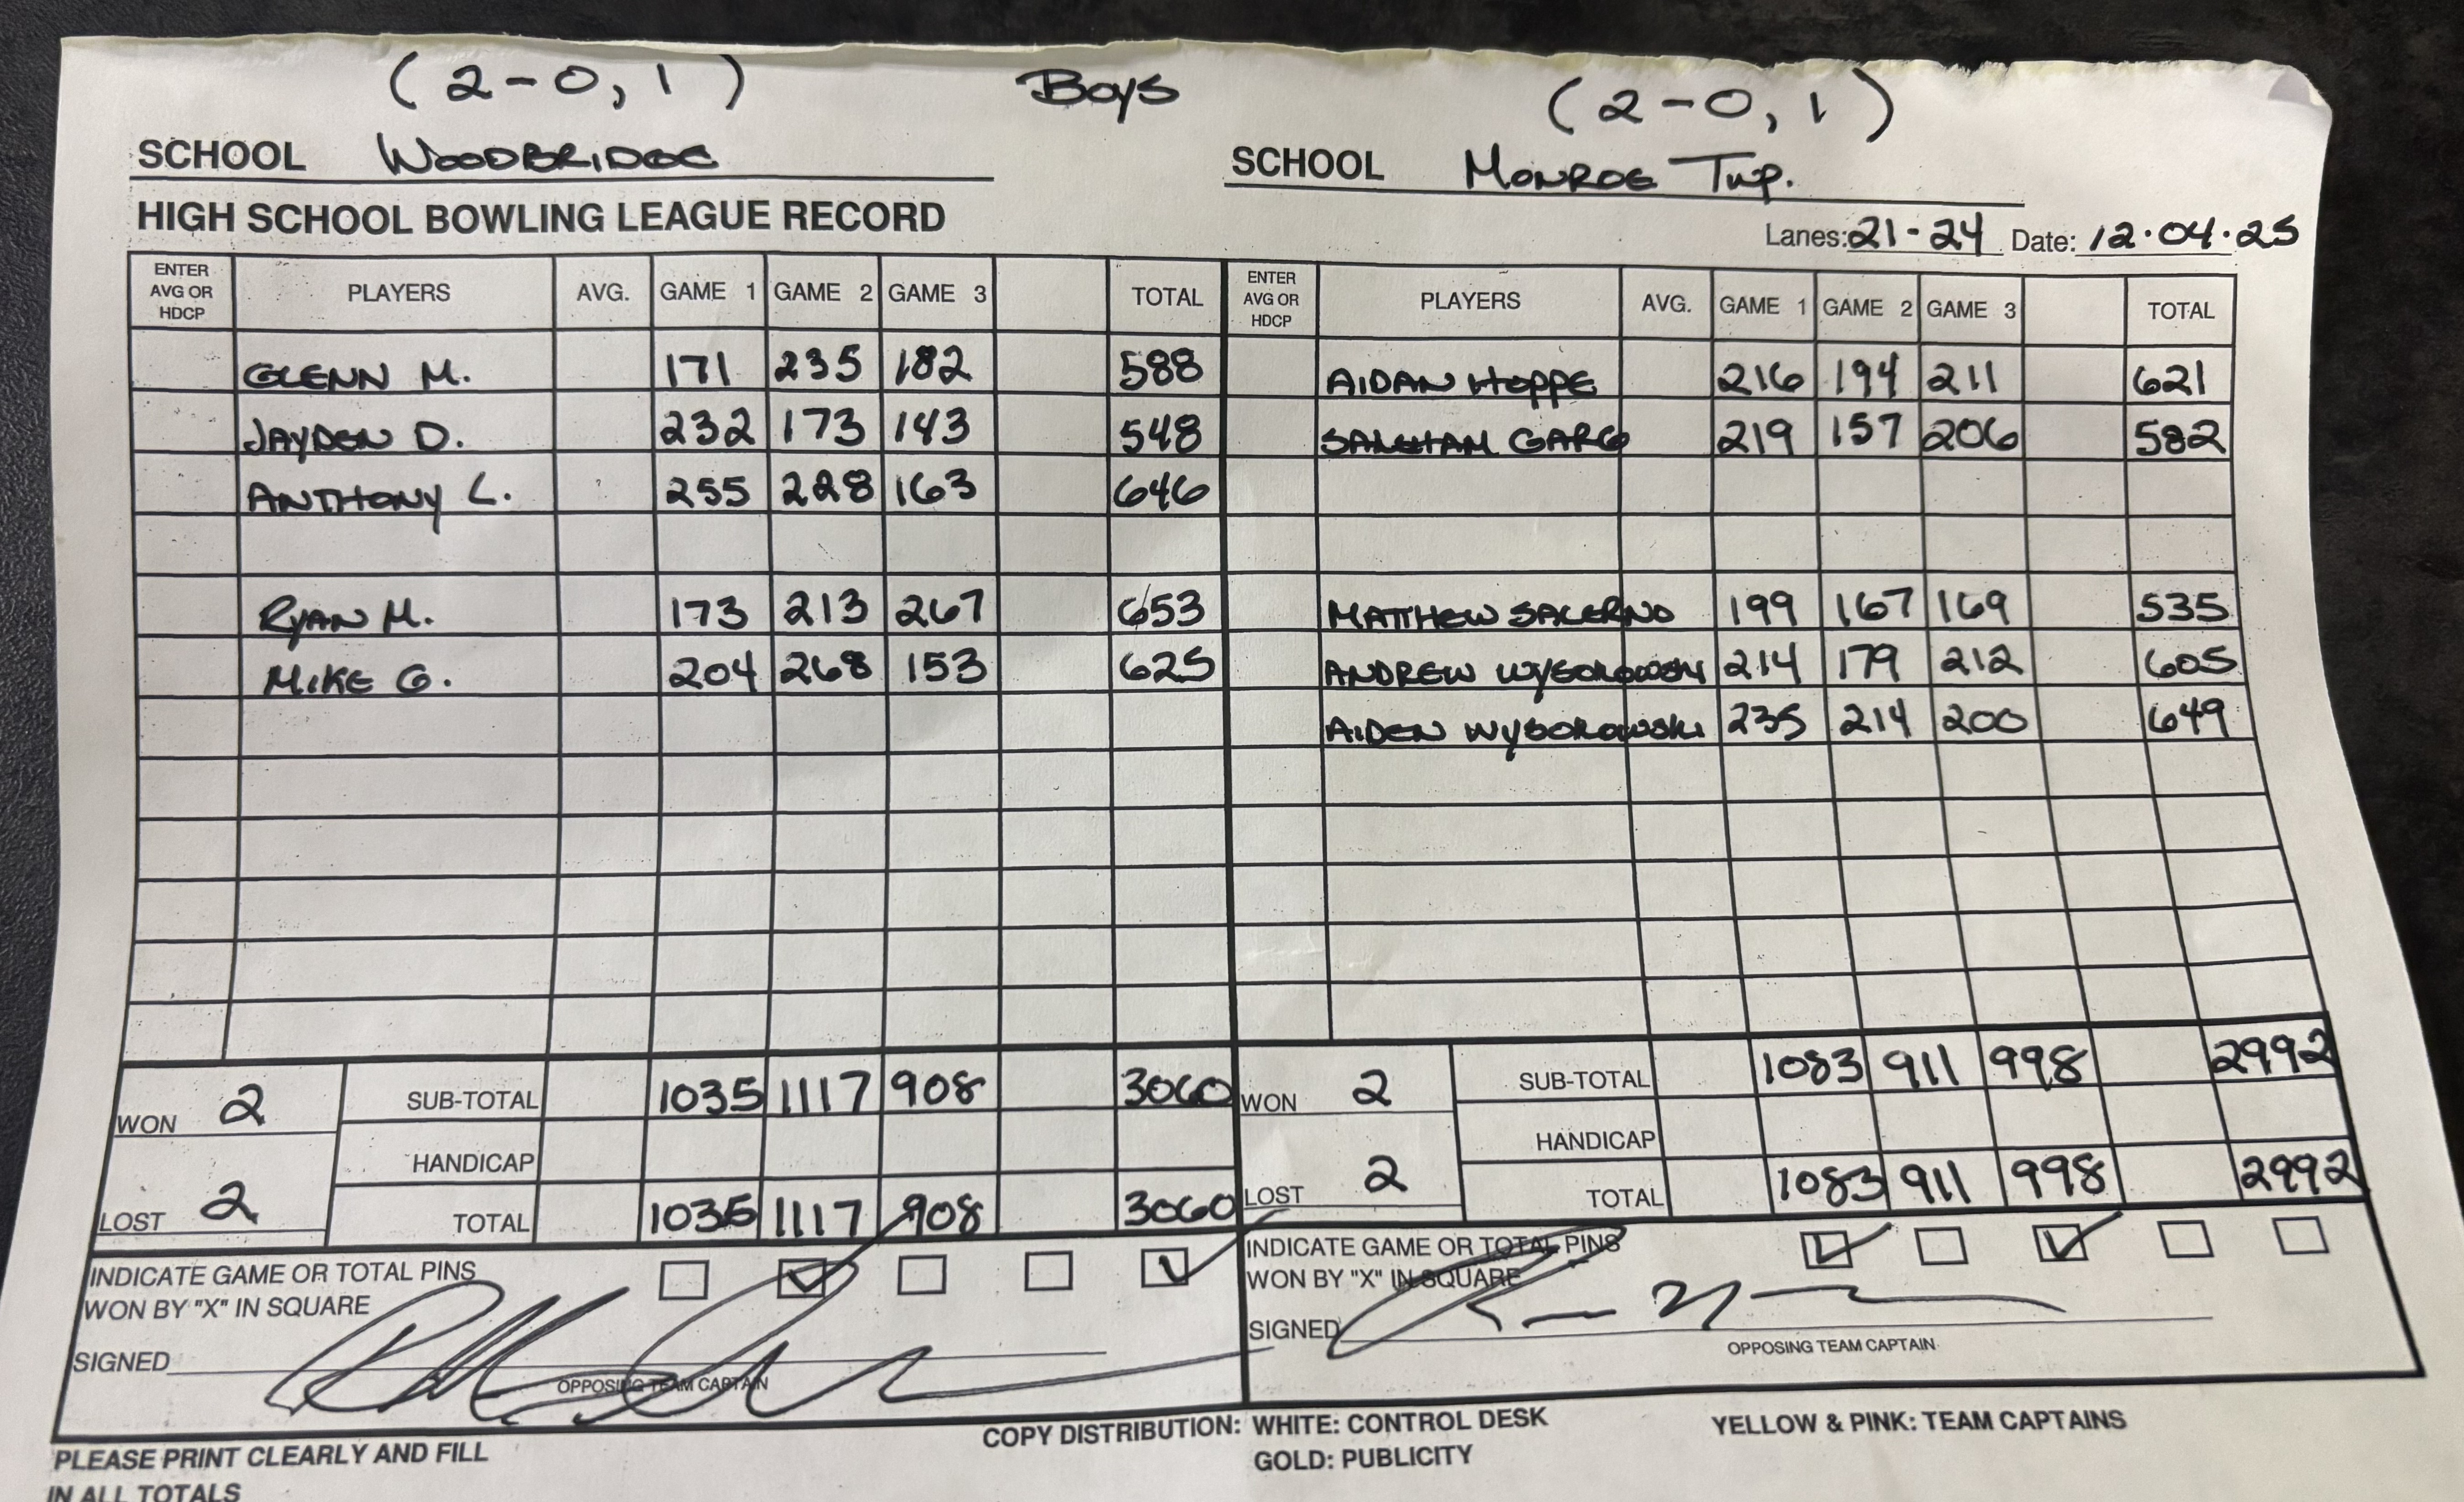 (2-0, 1) Boys (2-0, 1)
SCHOOL WOODBRIDGE SCHOOL MONROE TWP.
HIGH SCHOOL BOWLING LEAGUE RECORD Lanes: 21-24 Date: 12.04.25
ENTER AVG OR HDCP PLAYERS AVG. GAME 1 GAME 2 GAME 3 TOTAL ENTER AVG OR HDCP PLAYERS AVG. GAME 1 GAME 2 GAME 3 TOTAL
GLENN M. 171 235 182 588 AIDAN HOPPE 216 194 211 621
JAYDEN D. 232 173 143 548 GARG 219 157 206 582
ANTHONY L. 255 228 163 646
RYAN M. 173 213 267 653 MATTHEW SALERNO 199 167 169 535
MIKE G. 204 268 153 625 ANDREW WYSOROWSKI 214 179 212 605
AIDEN WYSOROWSKI 235 214 200 649
WON 2 SUB-TOTAL 1035 1117 908 3060 WON 2 SUB-TOTAL 1083 911 998 2992
HANDICAP HANDICAP
LOST 2 TOTAL 1035 1117 908 3060 LOST 2 TOTAL 1083 911 998 2992
INDICATE GAME OR TOTAL PINS INDICATE GAME OR TOTAL PINS
WON BY "X" IN SQUARE WON BY "X" IN SQUARE
SIGNED SIGNED
OPPOSING TEAM CAPTAIN OPPOSING TEAM CAPTAIN
PLEASE PRINT CLEARLY AND FILL COPY DISTRIBUTION: WHITE: CONTROL DESK YELLOW & PINK: TEAM CAPTAINS
IN ALL TOTALS GOLD: PUBLICITY